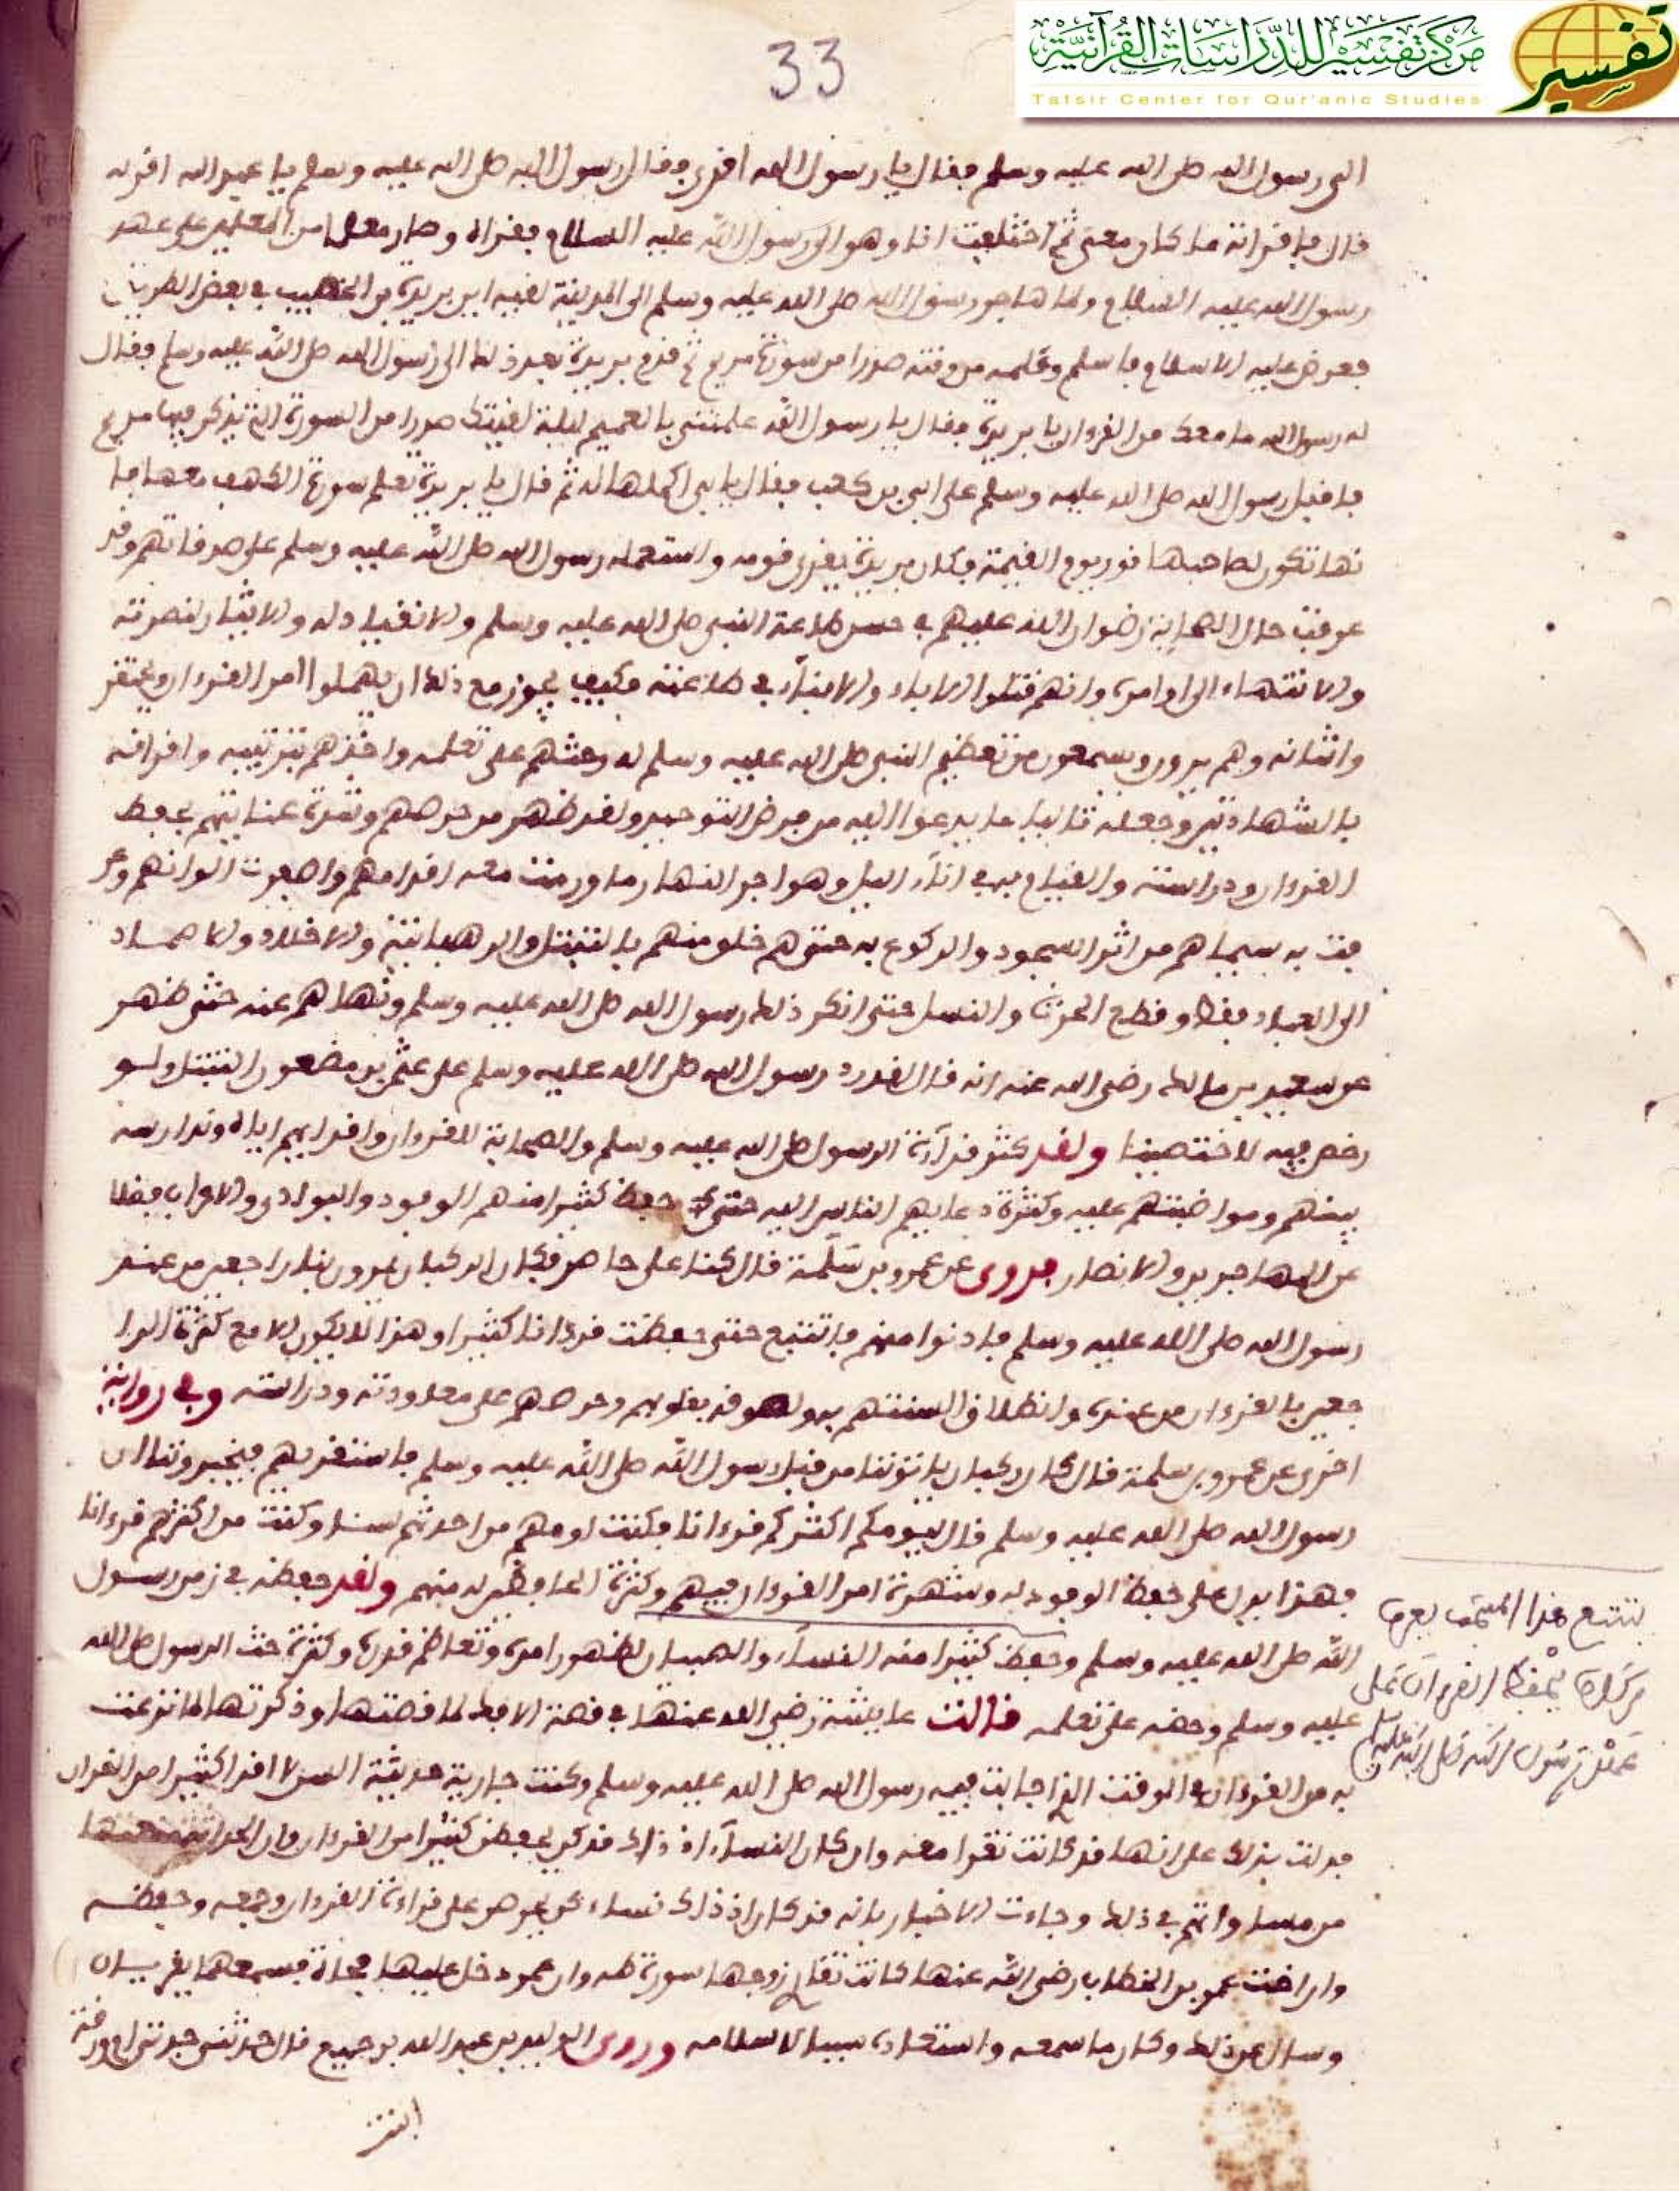 مركز تفسير للدراسات القرآنية
Tafsir Center for Qur'anic Studies
تفسير
33
الى رسول الله صلى الله عليه وسلم فقال يا رسول الله اقرئ فقال رسول الله صلى الله عليه وسلم يا عبد الله اقرئه
قال فاقرأته ما كان معى ثم اختلفت انا وهو الى رسول الله عليه السلام فقرأه وصار معلما من المعلمين على عهد
رسول الله عليه السلام ولما هاجر رسول الله صلى الله عليه وسلم الى المدينة لقيه ابن بريدة بن الخصيب فى بعض الطريق
فعرض عليه الاسلام فاسلم وعلمه من وقته صدرا من سورة مريم ثم قدم بريدة بعد ذلك الى رسول الله صلى الله عليه وسلم فقال
له رسول الله ما معك من القرءان يا بريدة فقال يا رسول الله علمتنى بالغميم ليلة لقيتك صدرا من السورة التى يذكر فيها مريم
فاقبل رسول الله صلى الله عليه وسلم على ابى بن كعب فقال يا ابى اكملها له ثم قال يا بريدة تعلم سورة الكهف معها فا
نها تكون لصاحبها نور يوم القيمة فكان بريدة يقرئ قومه واستعمله رسول الله صلى الله عليه وسلم على صدقاتهم وقد
عرفت حال الصحابة رضوان الله عليهم فى حسن طاعة النبى صلى الله عليه وسلم والانقياد له والايثار لنصرته
والانتهاء الى اوامره وانهم قتلوا الاباء والابناء فى طاعته فكيف يجوز مع ذلك ان يهملوا امر القرءان ويحتقر
واشانه وهم يرون ويسمعون من تعظيم النبى صلى الله عليه وسلم له وحثهم على تعلمه واخذهم بترتيبه واقرانه
بالشهادتين وجعله تاليا ما يدعوا اليه من فرض التوحيد ولقد ظهر من حرصهم وشدة عنايتهم بحفظ
القرءان ودراسته والقيام به فى اناء الليل وهواجر النهار ما ورمت معه اقدامهم واصفرت الوانهم وعر
فت به سيماهم من اثر السجود والركوع به حتى هم خلق منهم بالتبتل والرهبانية والاخلاد والاصماد
الى العباد فقط وقطع الحرث والنسل حتى انكر ذلك رسول الله صلى الله عليه وسلم ونهاهم عنه حتى ظهر
عن سعيد بن مالك رضى الله عنه انه قال لقد رد رسول الله صلى الله عليه وسلم على عثمن بن مضعون التبتل ولو
رخص فيه لاختصينا ولقد كثر قراءة الرسول صلى الله عليه وسلم والصحابة للقرءان واقرايهم اياه وتدارسه
بينهم ومواضبتهم عليه وكثرة دعايهم الناس اليه حتى حفظ كثيرا منهم الوفود والبوادى والاعراب فضلا
عن المهاجرين والانصار فروى عن عمرو بن سلمة قال كنا على حاضر فكان الركبان يمرون بنا راجعين من عند
رسول الله صلى الله عليه وسلم فادنوا منهم فاتتبع حتى حفظت قرءانا كثيرا وهذا لا يكون الا مع كثرة الرا
جعين بالقرءان من عنده وانطلاق السنتهم به ولصوقه بقلوبهم وحرصهم على معاودته ودراسته وفى رواية
اخرى عن عمرو بن سلمة قال كان ركبان ياتوننا من قبل رسول الله صلى الله عليه وسلم فاستقريهم فيخبروننا ان
رسول الله صلى الله عليه وسلم قال ليؤمكم اكثركم قرءانا فكنت اومهم من احدثهم سنا وكنت من اكثرهم قرءانا
فهذا يدل على حفظ الوفود له وشهرة امر القرءان فيهم وكثرة الحافظين له منهم ولقد حفظه فى زمن رسول
الله صلى الله عليه وسلم وحفظ كثيرا منه النساء والصبيان لظهور امره وتعاظم قدره وكثرة حث الرسول صلى الله
عليه وسلم وحضه على تعلمه فقالت عايشة رضى الله عنها فى قصة الافك لما قصتها وذكرتها لما نزعت
به من القرءان فى الوقت الذى اجابت فيه رسول الله صلى الله عليه وسلم وكنت جارية حديثة السن لا اقرا كثيرا من القران
فدلت بذلك على انها قد كانت تقرا معه وان كان النساء اذ ذاك قد كن يحفظن كثيرا من القرءان وان الحداثة منعتها
من مساواتهم فى ذلك وجاءت الاخبار بانه قد كان اذ ذاك نساء كن يحرصن على قراءة القرءان وجمعه وحفظه
وان اخت عمر بن الخطاب رضى الله عنها كانت تقرا زوجها سورة طه وان عمر دخل عليها فجاة فسمعهما يقريان
وسال عن ذلك وكان ما سمعه واستعاده سببا لاسلامه وروى الوليد بن عبد الله بن جميع قال حدثتنى جدتى ام ورقة
تتبع هذا
حفظ القرءان على
عهد رسول الله صلى الله عليه